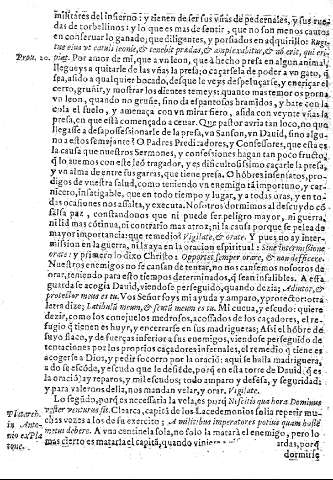 militares del infierno: y tienen de ser sus vñas de pedernales, y sus ruedas
das de torbellinos: y lo que es mas de sentir, que no son menos cautos
en conseruar lo ganado, que diligentes, y porfiados en adquirillo: Rugiet
eius vt catuli leonis, & tenebit prædas, & amplexabitur, & nõ erit, qui eri-
Prou. 20. piat. Por amor de mi, que a vn leon, que à hecho presa en algun animal,
llegueys a quitarle de las vñas la presa; o caçarsela de poder a vn gato, q̃
sea, asido a qualquier bocado, desque le veys despeluçarse, y enerizar el
cerro, gruñir, y mostrar los dientes temeys: quanto mas temor os porna
vn leon, quando no gruñe, sino da espantosos bramidos, y bate con la
cola el suelo, y amenaça con vn mirar fiero, asida con veynte vñas la
presa, en que està començado a ceuar. Que pastor auria tan loco, no que
llegasse a desapossessionarle de la presa, vn Sanson, vn Dauid, sino algu-
no a estos semejante? O Padres Predizadores, y Confessores, que esta es
la causa que nuestros sermones, y confessiones hagan tan poco fructo,
q̃ lo auemos con este leõ tragador, y es dificultosissimo caçarle la presa,
y vn alma de entre sus garras, que tiene presa. O hõbres insensatos, pro-
digos de vuestra salud, como teniendo vn enemigo tã importuno, y car-
nicero, infatigable, que en todo tiempo y lugar, y a todas oras, y en to-
das ocasiones nos assalta, y executa. Nosotros dormimos al descuydo cõ
falsa paz, constandonos que ni puede ser peligro mayor, ni guerra,
ni lid mas cõtinua, ni contrario mas atroz; ni la causa porque se pelea de
mayor importancia: que remedio? Vigilate, & orate. Y pues no ay inter-
mission en la guerra, ni la aya en la oracion espiritual: Sine intermissione
orate: y primero lo dixo Christo: Oportet semper orare, & non deficere.
Nuestros enemigos no se cansan de tentar, no nos cansemos nosotros de
orar, teniendo para ello tiempos determinados, q̃ sean infalibles. A esta
guarda se acogia Dauid, viendose perseguido, quando dezia: Adiutor, &
protector meus es tu. Vos Señor soys mi ayuda y amparo, y protector: otra
letra dize: Latibulũ meum, & scutũ meum es tu. Mi cueua, y escudo: quiere
dezir, como los conejuelos medrosos, acossados de los caçadores, el re-
fugio q̃ tienen es huyr, y encerrarse en sus madrigueras; Assi el hõbre de
suyo flaco, y de fuerças inferior a sus enemigos, viendose perseguido de
tentaciones por los propios caçadores infernales, el remedio q̃ tiene es
acogerse a Dios, y pertrecharse por la oracion: aqui se halla madriguera,
a do se escõde, y escudo que le defiẽde, porq̃ en esta torre de Dauid (q̃ es
la oraciõ) ay reparos, y mil escudos; todo amparo y defesa, y seguridad;
y para valernos della, nos mandan velar, y orar. Vigilate.
Lo segũdo, porq̃ es necessaria la vela, es porq̃ Nescitis qua hora Dominus
vester venturus sit. Clearca, capitã de los Lacedemonios solia repetir mu-
Plutarch. in Antonio chas vezes a los de su exercito: A militibus imperatores potius quam hosté
metui debere. A vna centinela sola, no solo la matarà el enemigo, pero lo
mas cierto es matarla el capitã, quando viniendo
ardas, porq̃
dormirse